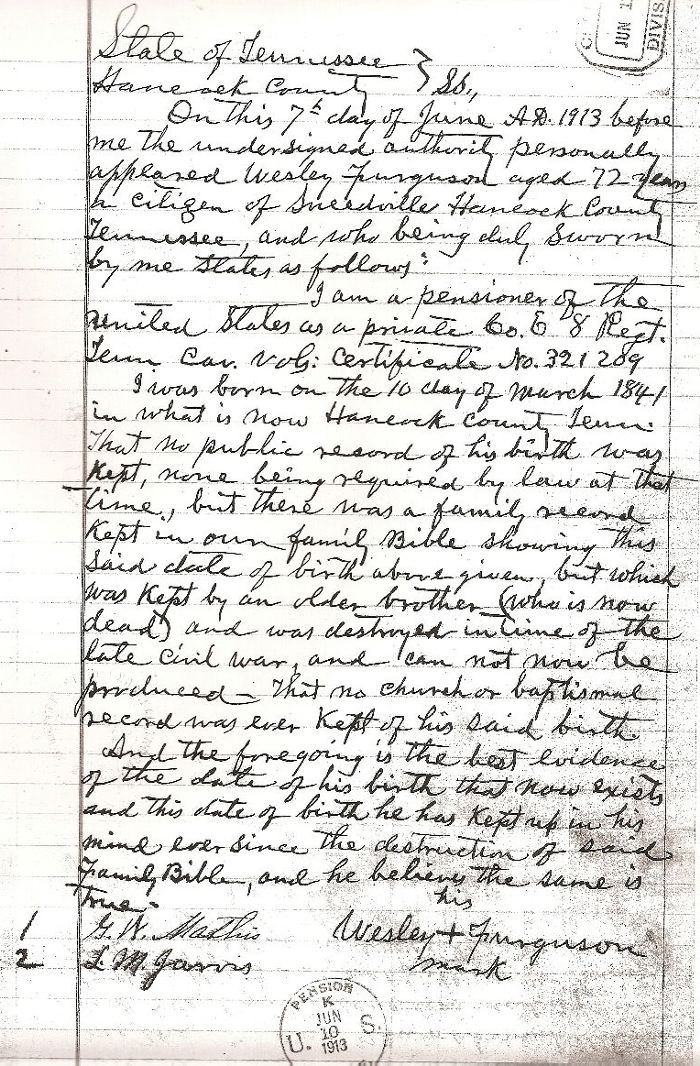 JUN
DIVIS
State of Tennessee } SS.,
Hancock County
On this 7th day of June A.D. 1913 before
me the undersigned authority personally
appeared Wesley Furguson aged 72 years
a citizen of Sneedville Hancock County
Tennessee, and who being duly sworn
by me states as follows:
I am a pensioner of the
United States as a private Co. E 8 Regt.
Tenn Cav. Vols: Certificate No. 321289
I was born on the 10 day of March 1841
in what is now Hancock County Tenn:
That no public record of his birth was
Kept, none being required by law at that
time, but there was a family record
Kept in our family Bible showing this
said date of birth above given, but which
was Kept by an older brother (who is now
dead) and was destroyed in time of the
late civil war, and can not now be
produced - That no church or baptismal
record was ever Kept of his said birth
And the foregoing is the best evidence
of the date of his birth that now exists
and this date of birth he has Kept up in his
mind ever since the destruction of said
Family Bible, and he believes the same is
true-
his
1 G. W. Mathis Wesley + Furguson
2 L. M. Jarvis mark
PENSION
K
JUN
10
1913
U. S.